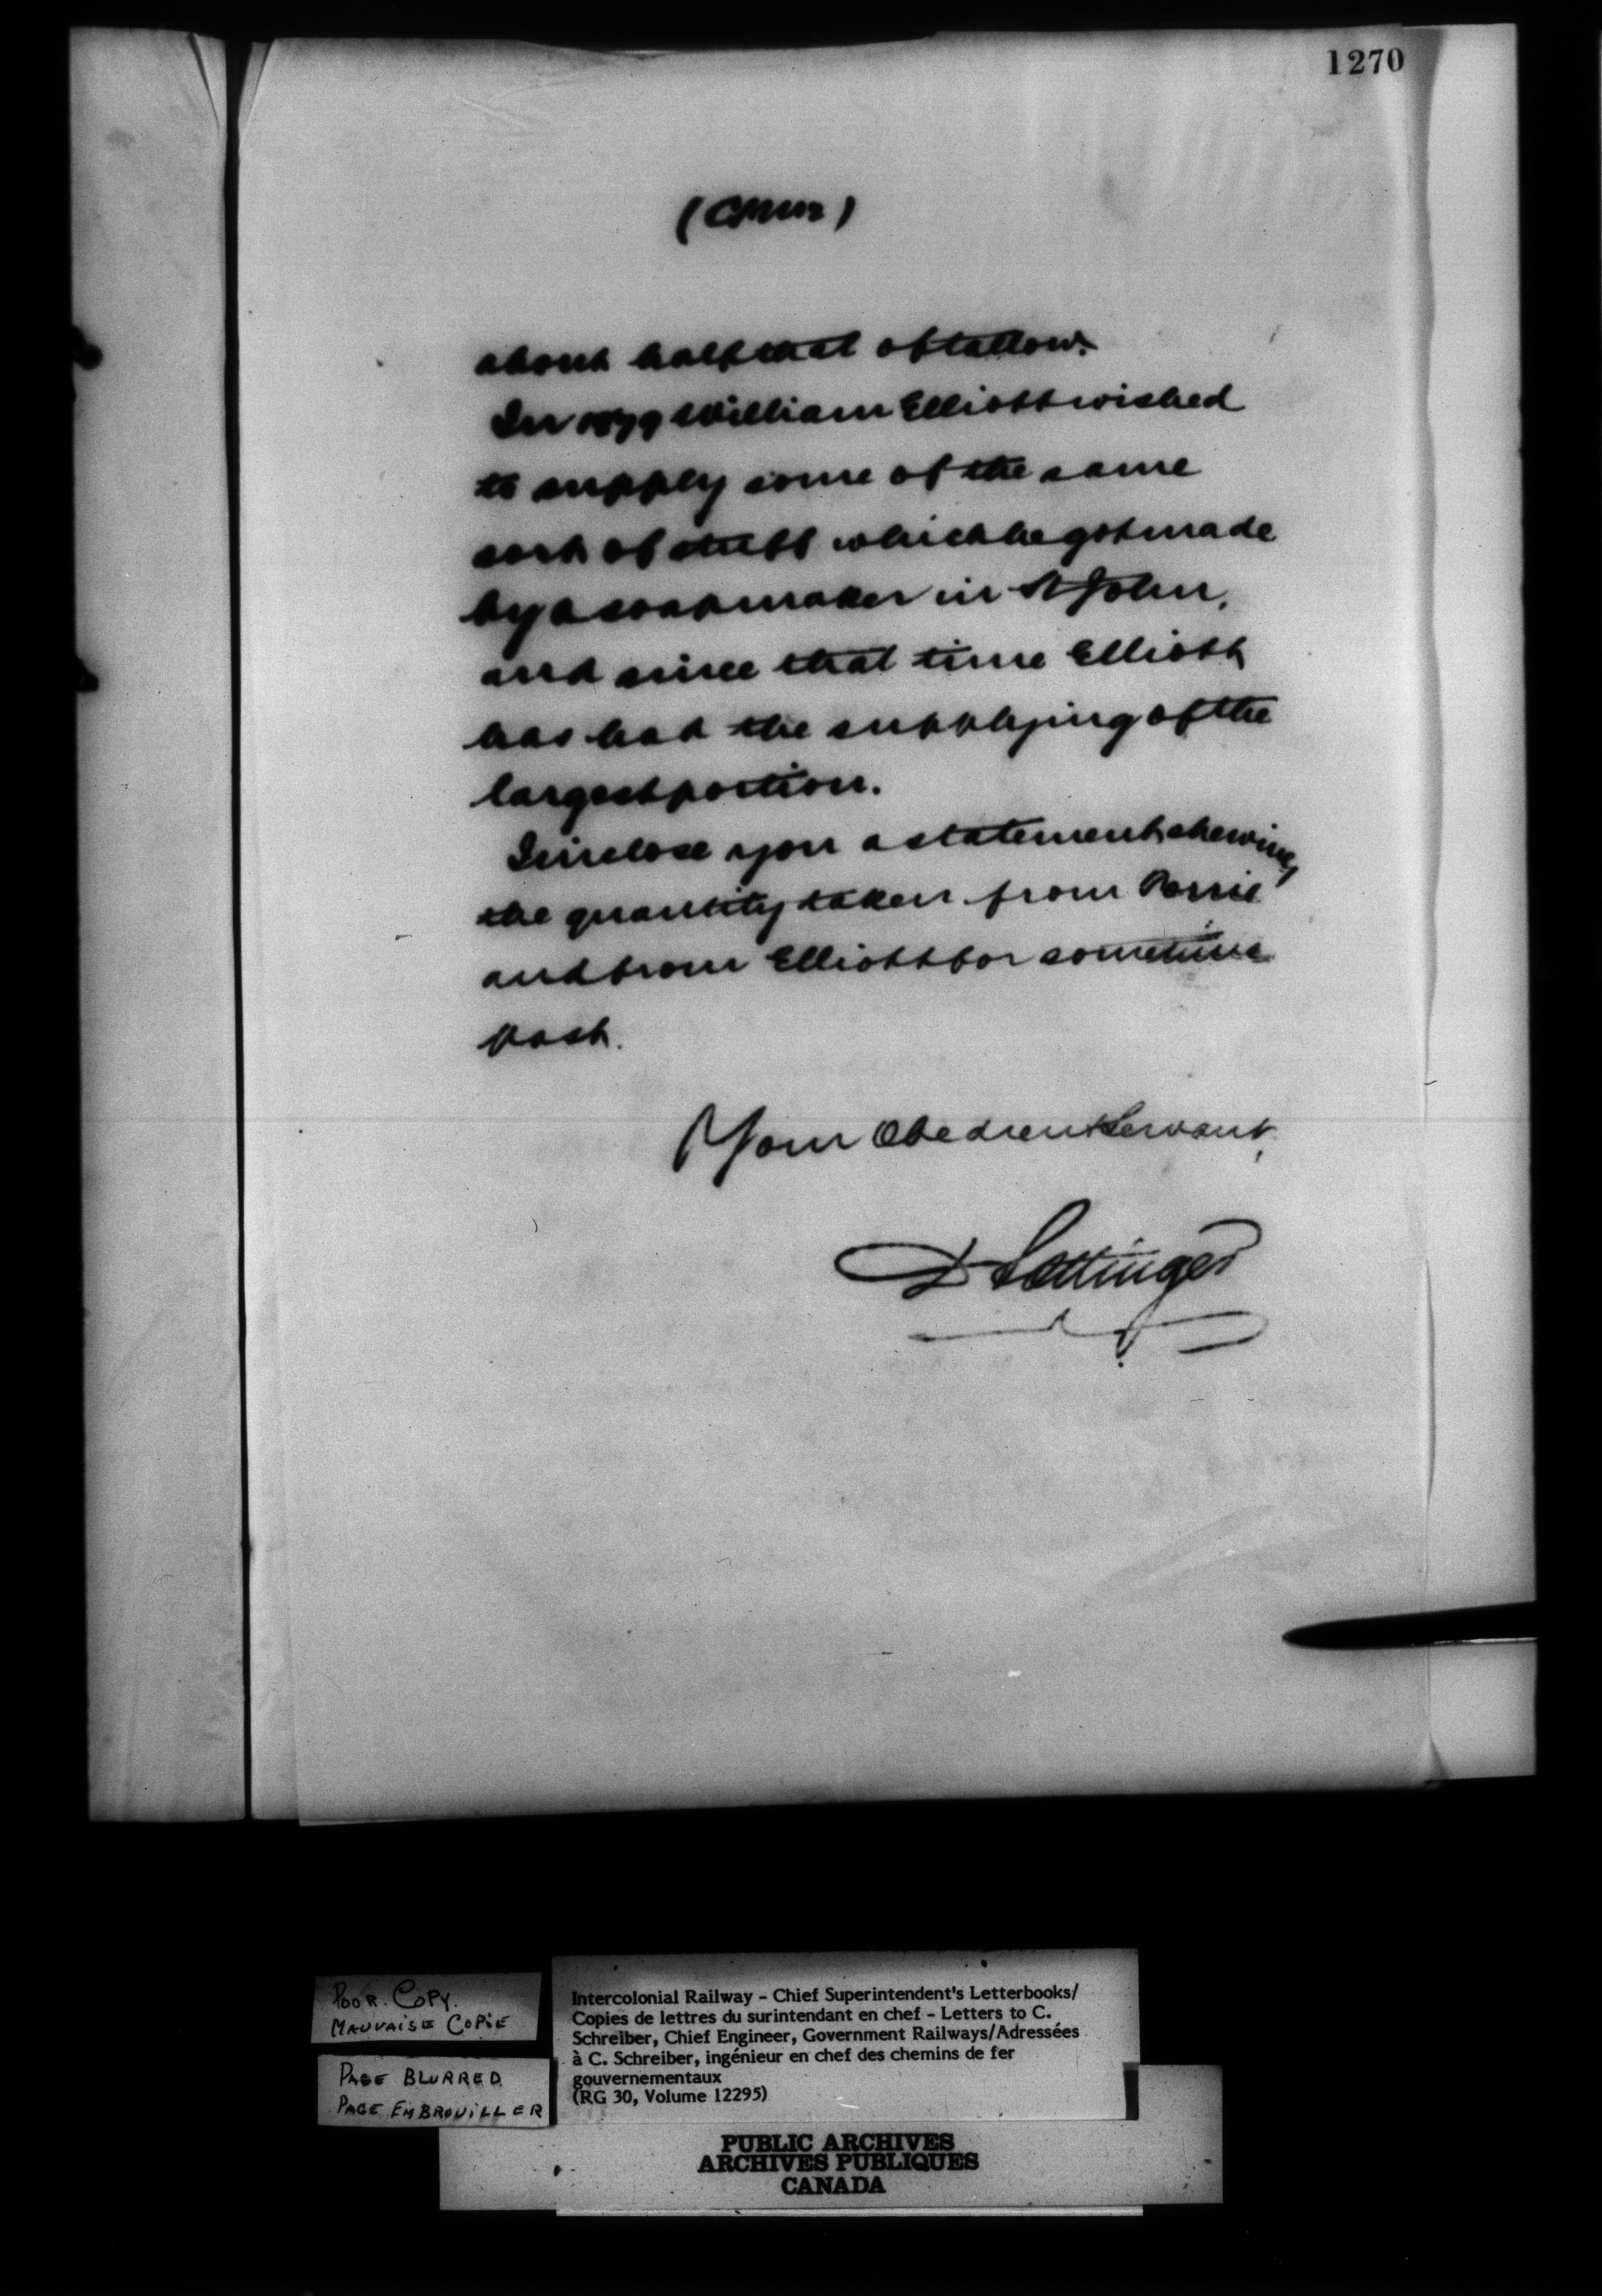 1270
about half that of tallow.
In 1879 William Elliott wished
to supply some of the same
sort of stuff which he got made
by a soapmaker in St John,
and since that time Elliott
has had the supplying of the
largest portion.
I inclose you a statement shewing
the quantity taken from
and from Elliott for sometime
past.
Your Obedient Servant,
D Pottinger
POOR. COPY.
MAUVAISE COPIE
PAGE BLURRED
PAGE EMBROUILLER
Intercolonial Railway – Chief Superintendent's Letterbooks/
Copies de lettres du surintendant en chef – Letters to C.
Schreiber, Chief Engineer, Government Railways/Adressées
à C. Schreiber, ingénieur en chef des chemins de fer
gouvernementaux
(RG 30, Volume 12295)
PUBLIC ARCHIVES
ARCHIVES PUBLIQUES
CANADA